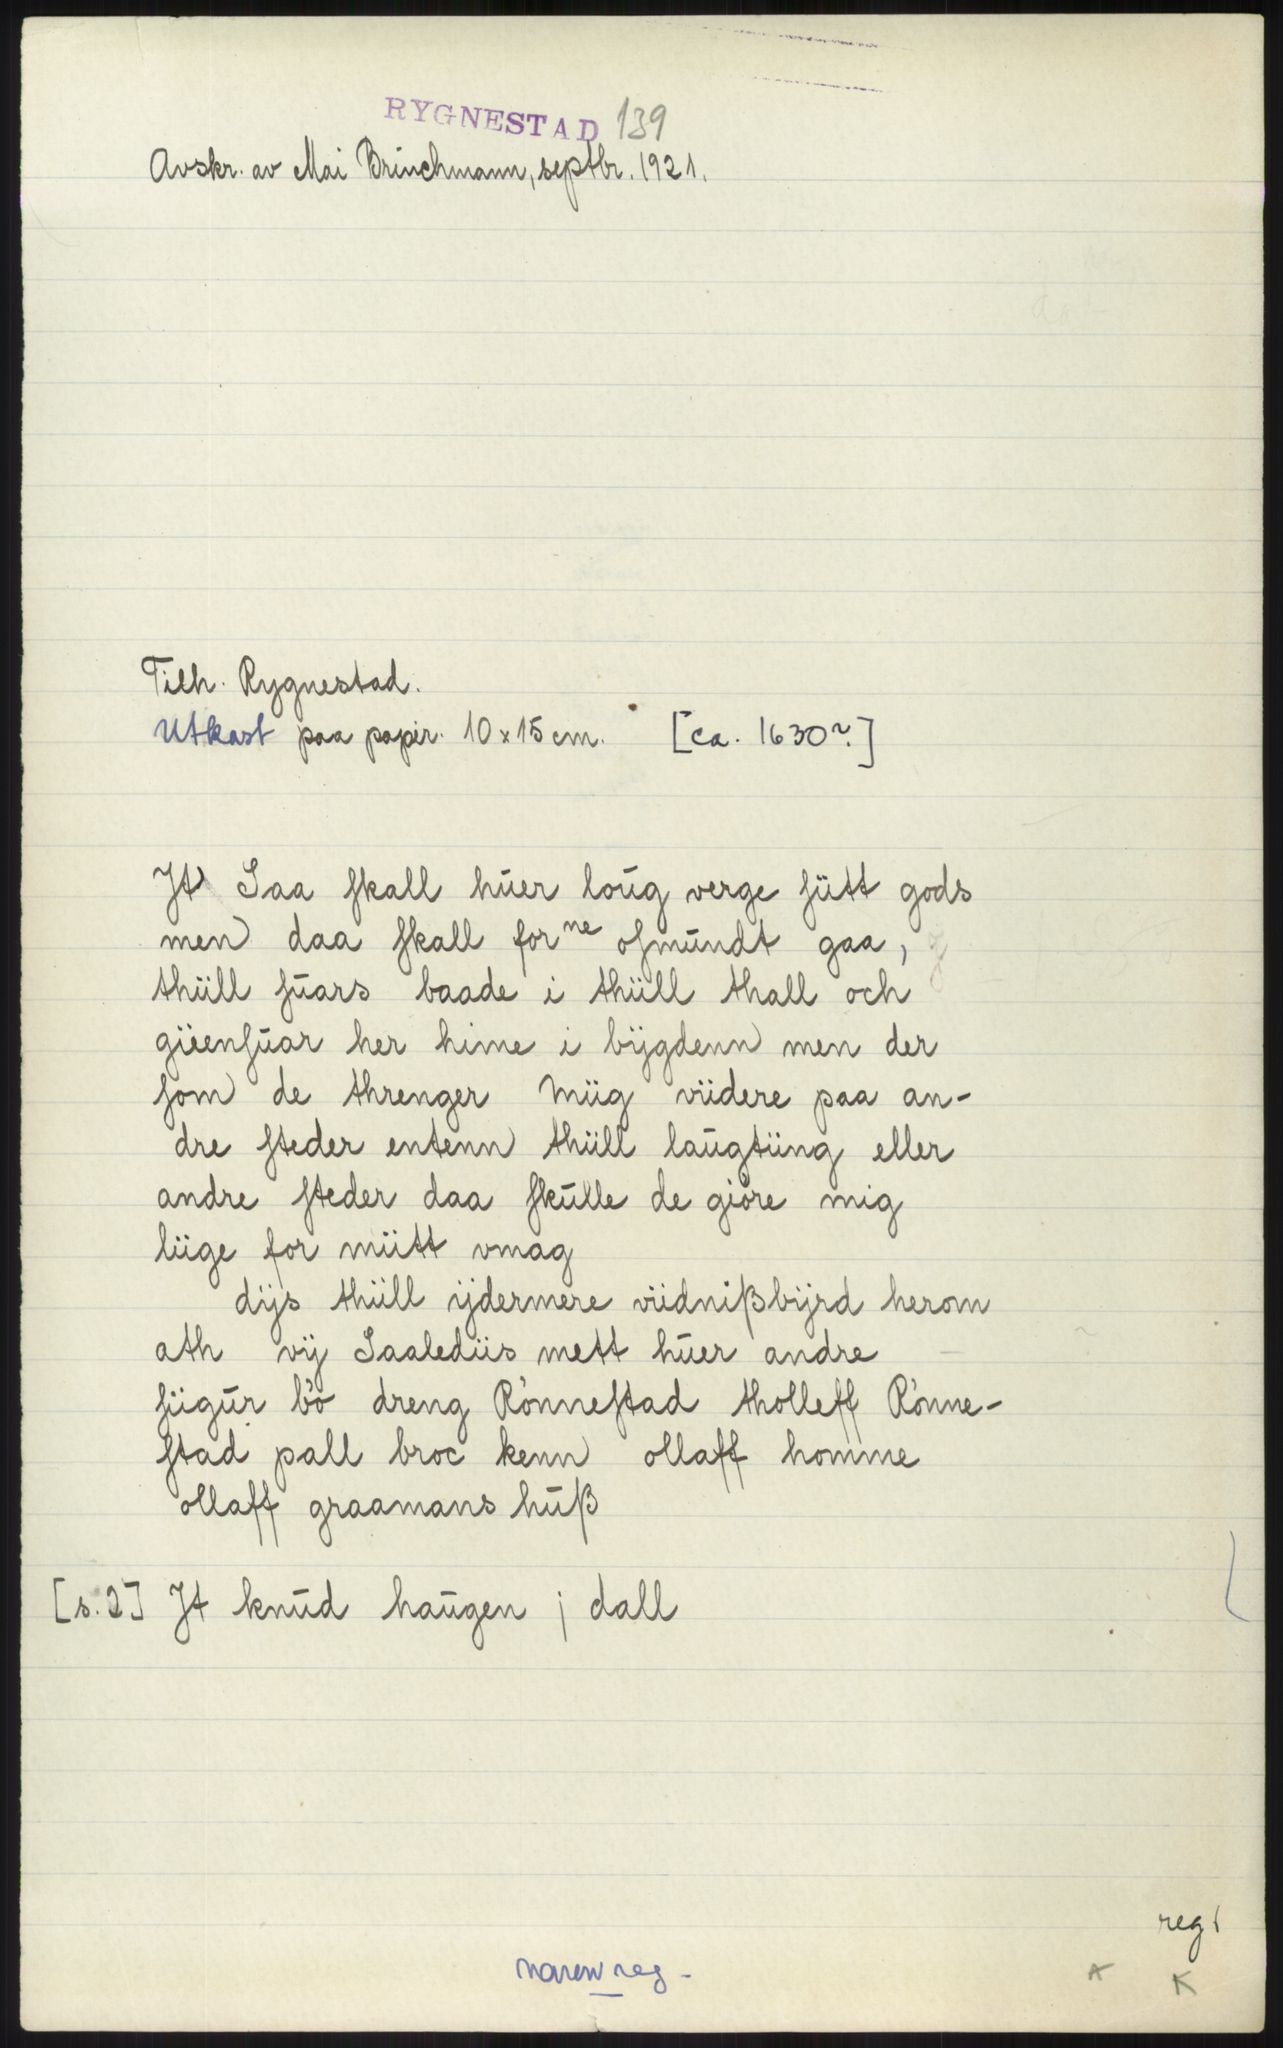 RYGNESTAD 139
Avskr. av Mai Brinchmann, septbr. 1921.
Tilh. Rygnestad.
Utkast paa papir. 10 x 15 cm. [ca. 1630?]
Jt Saa skall huer loug verge sütt gods
men daa skall for ne osmundt gaa,
thüll suars baade i thüll thall och
gïensuar her hime i bÿgdenn men der
som de threnger müg vüdere paa an-
dre steder entenn thüll laugtüng eller
andre steder daa skulle de giöre mig
lüge for mütt vmag
dÿs thüll ÿdermere vüdnißbÿrd herom
ath vÿ Saaledüs mett huer andre
sügur bö dreng Rönnestad tholleff Rönne-
stad pall broc kenn ollaff homme
ollaff graamans huß
[s. 2] Jt knud haugen j dall
reg
reg -